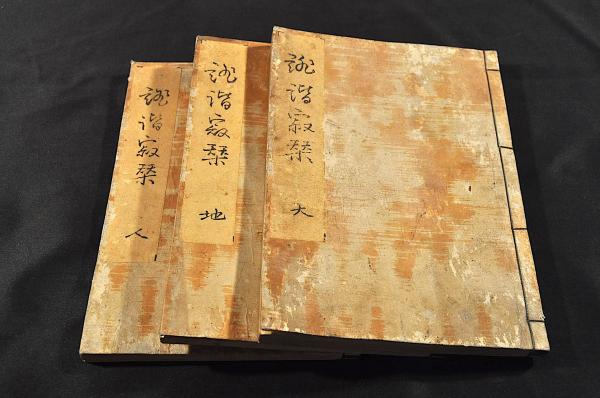 誹諧寂栞 天
誹諧寂栞 地
誹諧寂栞 人